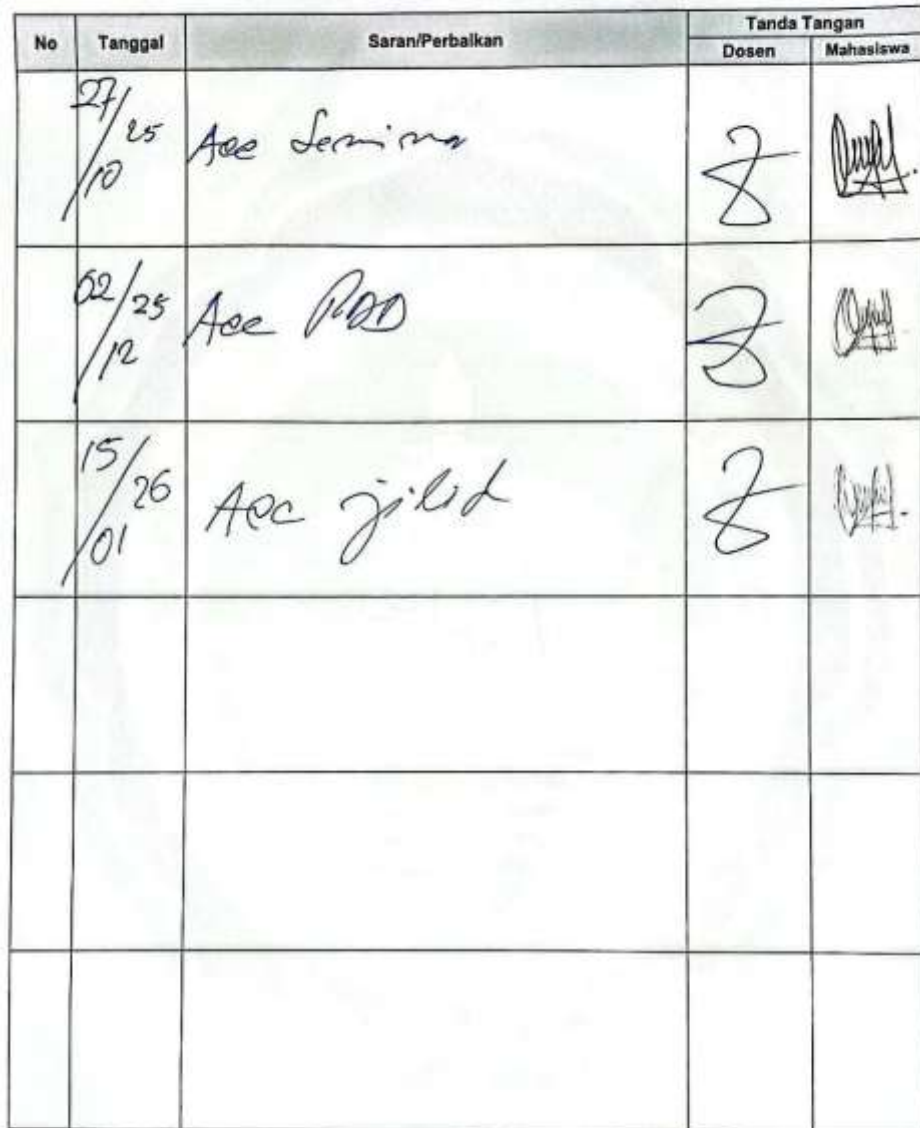 No Tanggal Saran/Perbaikan Tanda Tangan
Dosen Mahasiswa
27/10 25 Acc Semina
02/12 25 Acc
15/01 26 Acc jilid